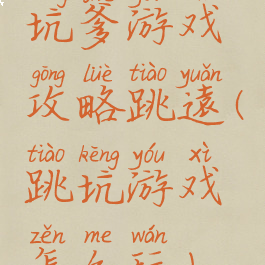 坑爹游戏
gōng lüè tiào yuǎn
攻略跳遠(
tiào kēng yóu xì
跳坑游戏
zěn me wán
怎么玩)